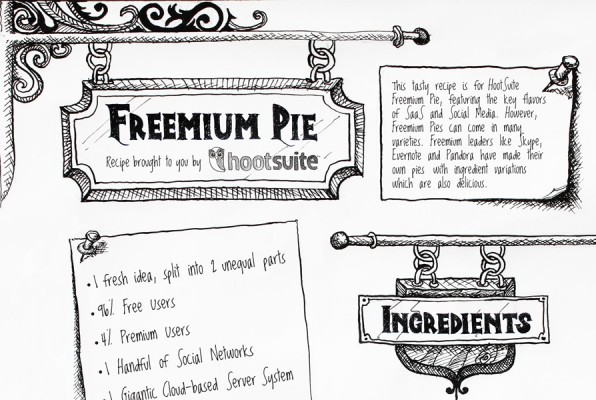 FREEMIUM PIE
Recipe brought to you by hootsuite
This tasty recipe is for HootSuite
Freemium Pie, featuring the key flavors
of SaaS and Social Media. However,
Freemium Pies can come in many
varieties. Freemium leaders like Skype,
Evernote and Pandora have made their
own pies with ingredient variations
which are also delicious.
• 1 fresh idea, split into 2 unequal parts
• 96% Free Users
• 4% Premium Users
• 1 Handful of Social Networks
• 1 Gigantic Cloud-based Server System
INGREDIENTS